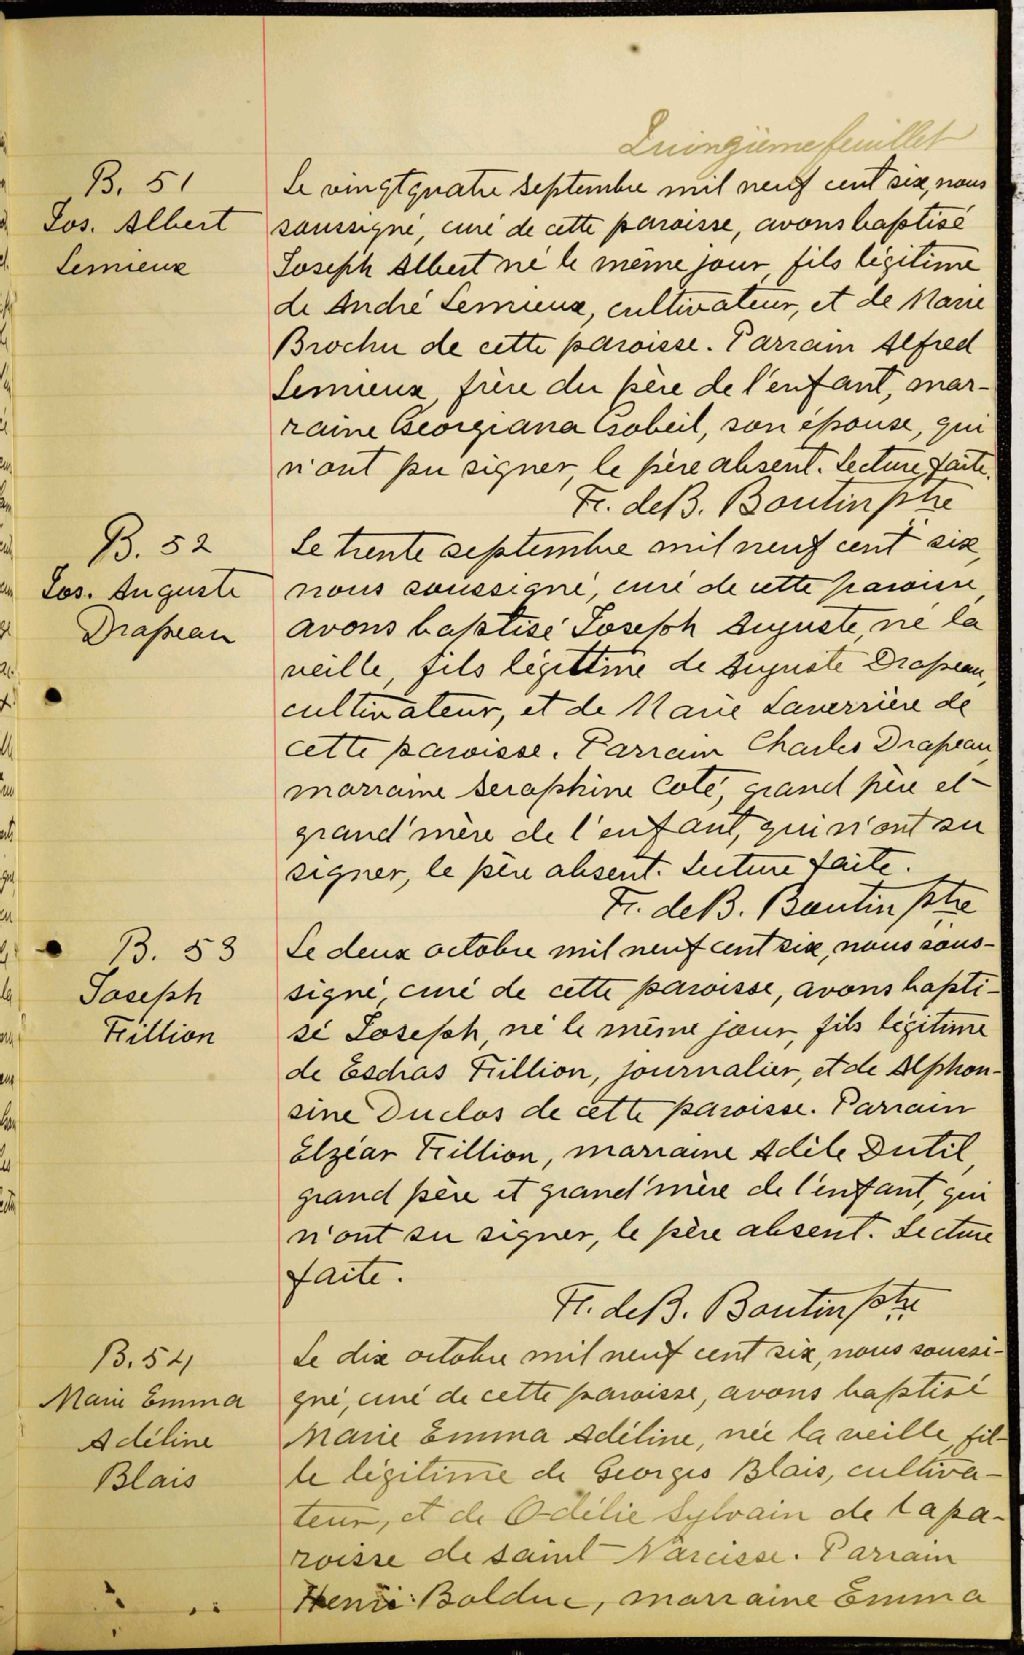 Quinzième feuillet
B. 51
Jos. Albert
Lemieux
Le vingt quatre septembre mil neuf cent six, nous
soussigné, curé de cette paroisse, avons baptisé
Joseph Albert né le même jour, fils légitime
de André Lemieux, cultivateur, et de Marie
Brochu de cette paroisse. Parrain Alfred
Lemieux, frère du père de l'enfant, mar-
raine Georgiana Gobeil, son épouse, qui
n'ont pu signer, le père absent. Lecture faite.
Fr. de B. Boutin ptre
B. 52
Jos. Auguste
Drapeau
Le trente septembre mil neuf cent six,
nous soussigné, curé de cette paroisse,
avons baptisé Joseph Auguste, né la
veille, fils légitime de Auguste Drapeau,
cultivateur, et de Marie Laverrière de
cette paroisse. Parrain Charles Drapeau,
marraine Seraphine Coté, grand père et
grand'mère de l'enfant, qui n'ont su
signer, le père absent. Lecture faite.
Fr. de B. Boutin ptre
B. 53
Joseph
Fillion
Le deux octobre mil neuf cent six, nous sous-
signé, curé de cette paroisse, avons bapti-
sé Joseph, né le même jour, fils légitime
de Esdras Fillion, journalier, et de Alphon-
sine Duclos de cette paroisse. Parrain
Elzéar Fillion, marraine Adèle Dutil,
grand père et grand'mère de l'enfant, qui
n'ont su signer, le père absent. Lecture
faite.
Fr. de B. Boutin ptre
B. 54
Marie Emma
Adéline
Blais
Le dix octobre mil neuf cent six, nous soussi-
gné, curé de cette paroisse, avons baptisé
Marie Emma Adéline, née la veille, fil-
le légitime de Georges Blais, cultiva-
teur, et de Odélie Sylvain de la pa-
roisse de saint Narcisse. Parrain
Henri Bolduc, marraine Emma